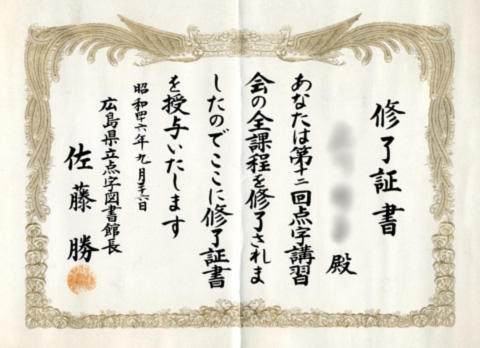 修了証書
殿
あなたは第十二回点字講習
会の全課程を修了されま
したのでここに修了証書
を授与いたします
昭和四六年九月二六日
広島県立点字図書館長
佐藤勝